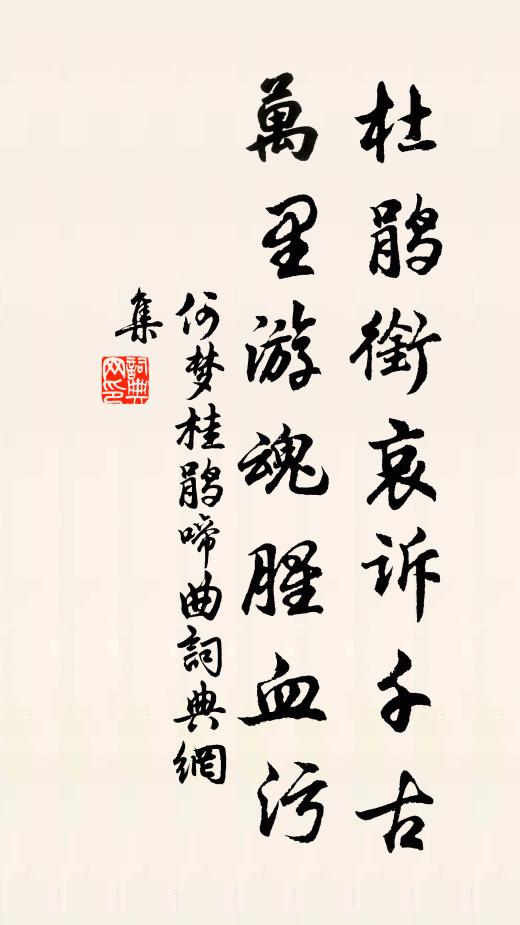 杜鹃銜哀诉千古
萬里游魂腥血污
何梦桂鹃啼曲詞典網
集
詞典
网印